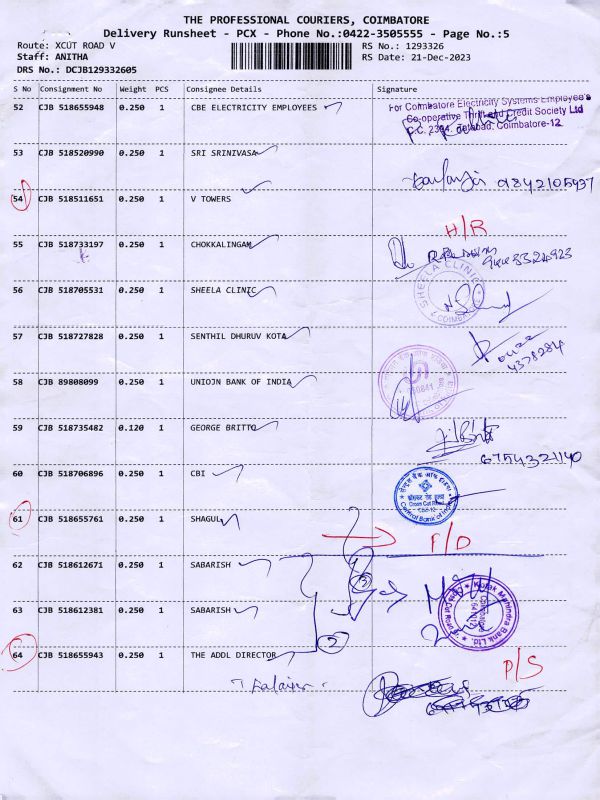 THE PROFESSIONAL COURIERS, COIMBATORE
Delivery Runsheet - PCX - Phone No.:0422-3505555 - Page No.:5
Route: XCUT ROAD V RS No.: 1293326
Staff: ANITHA RS Date: 21-Dec-2023
DRS No.: DCJB129332605
S No Consignment No Weight PCS Consignee Details Signature
52 CJB 518655948 0.250 1 CBE ELECTRICITY EMPLOYEES
For Coimbatore Electricity Systems Employee's
Co-operative Thrift and Credit Society Ltd
Coimbatore-12
53 CJB 518520990 0.250 1 SRI SRINIVASA
9842105937
54 CJB 518511651 0.250 1 V TOWERS
H/R
55 CJB 518733197 0.250 1 CHOKKALINGAM
56 CJB 518705531 0.250 1 SHEELA CLINIC
SHEELA CLINIC
57 CJB 518727828 0.250 1 SENTHIL DHURUV KOTA
4378284
58 CJB 89808099 0.250 1 UNIOJN BANK OF INDIA
59 CJB 518735482 0.120 1 GEORGE BRITTO
6754321140
60 CJB 518706896 0.250 1 CBI
Cross Cut Road
Central Bank of India
61 CJB 518655761 0.250 1 SHAGUL
F/D
62 CJB 518612671 0.250 1 SABARISH
3
63 CJB 518612381 0.250 1 SABARISH
Kotak Mahindra Bank Ltd.
2
64 CJB 518655943 0.250 1 THE ADDL DIRECTOR
P/S